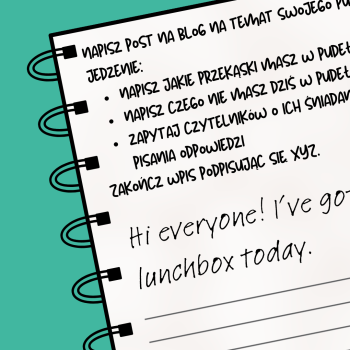 NAPISZ POST NA BLOG NA TEMAT SWOJEGO
JEDZENIE:
• NAPISZ JAKIE PRZEKĄSKI MASZ W
• NAPISZ CZEGO NIE MASZ DZIŚ W
• ZAPYTAJ CZYTELNIKÓW O ICH
PISANIA ODPOWIEDZI
ZAKOŃCZ WPIS PODPISUJĄC SIĘ XYZ.
Hi everyone! I've got
lunchbox today.